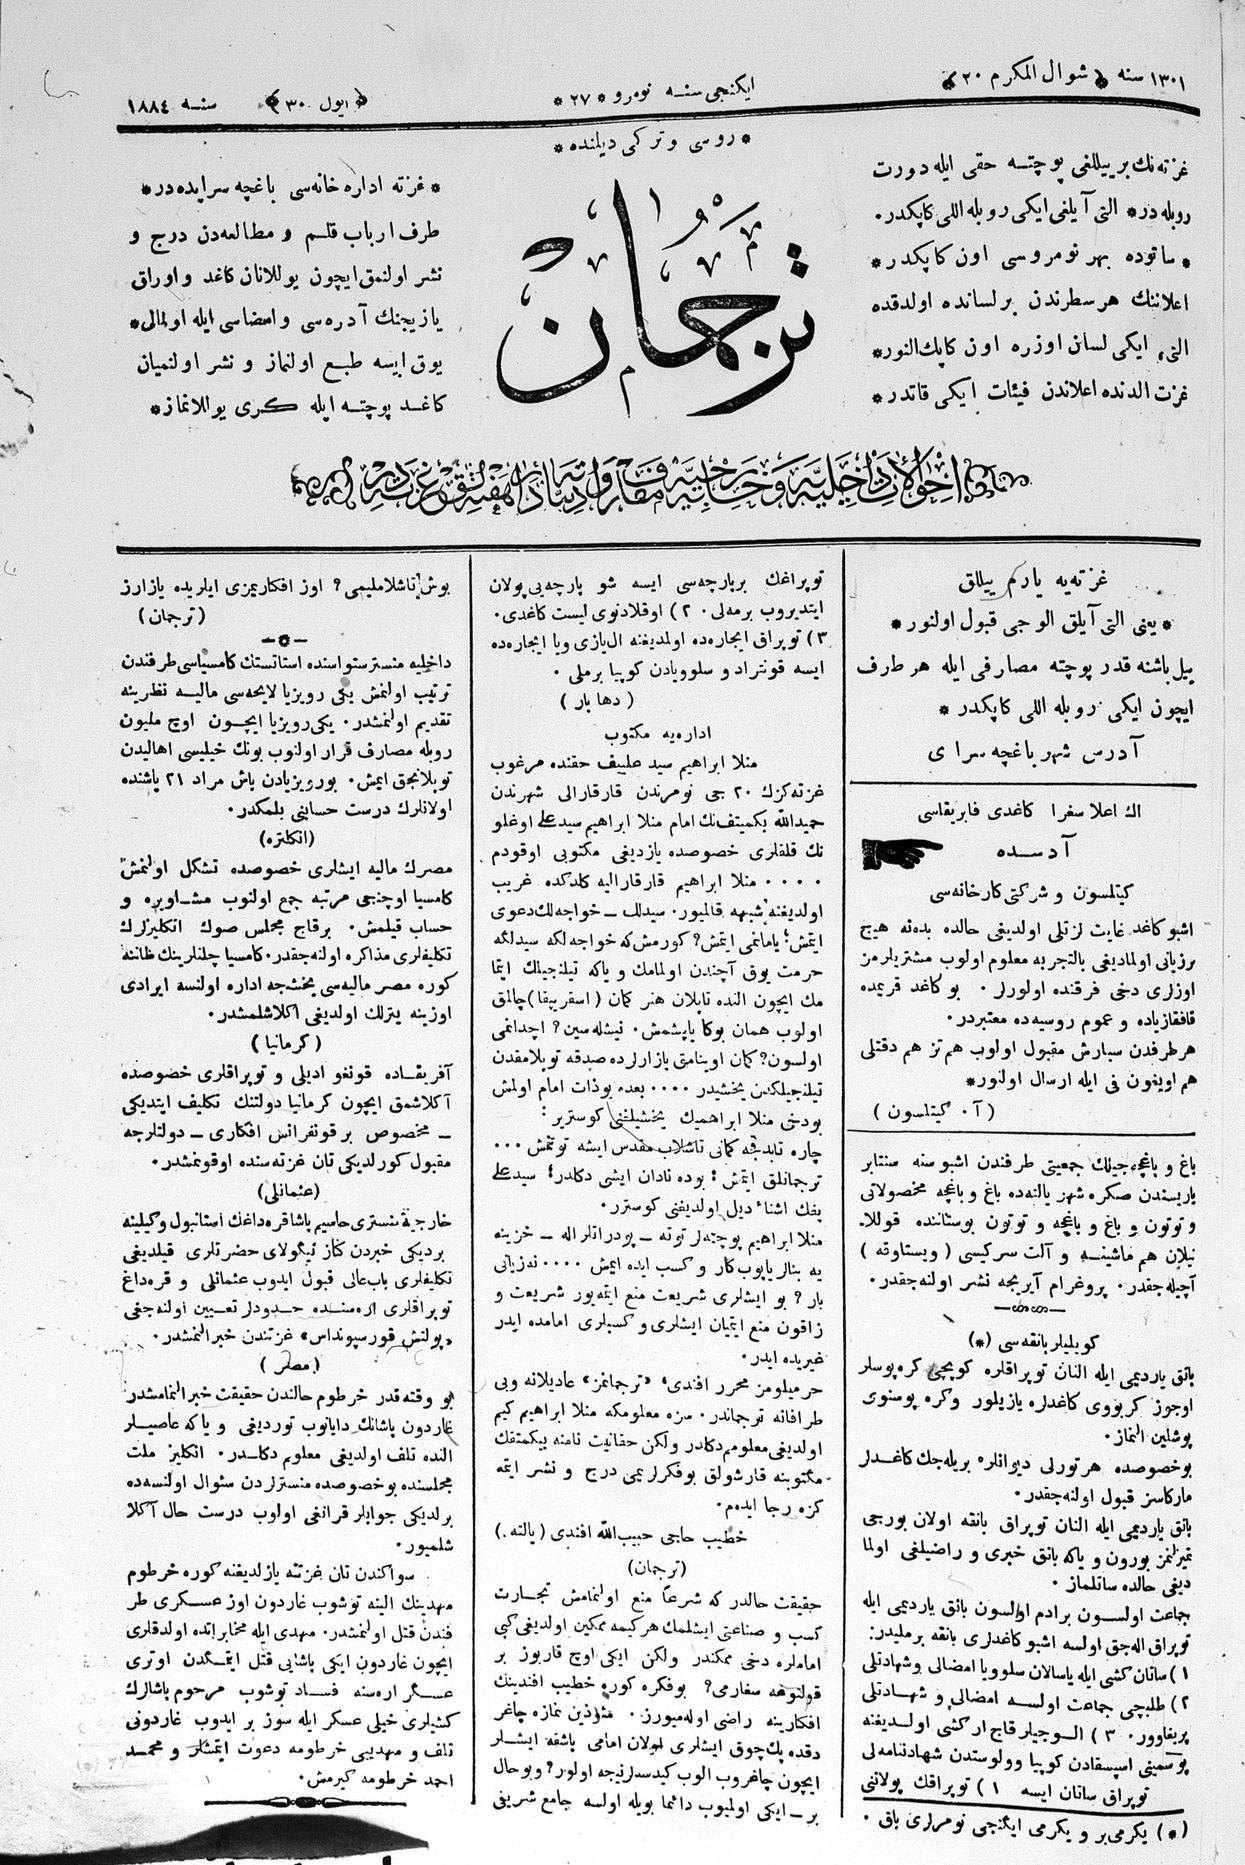 ١٣٠١ سنه شوال المكرم ٢٠
ايكنجى سنه نومرو ٢٧
ايول ٣٠
سنه ١٨٨٤
غزته‌نك بر ييللغى پوچته حقى ايله دورت
روبله در* التى آيلغى ايكى روبله اللى كاپكدر.
* ساتوده بهر نومروسى اون كاپكدر *
اعلاننك هر سطرندن بر لسانده اولدقده
التى، ايكى لسان اوزره اون كاپك النور*
غزت الدنده اعلاندن فيئات ايكى قاتدر *
* روسى و تركى ديلنده *
ترجمان
* غزته اداره خانه‌سى باغچه سرايده در*
طرف ارباب قلم و مطالعه‌دن درج و
نشر اولنمق ايچون يوللانان كاغد و اوراق
يازيجنك آدره‌سى و امضاسى ايله اولمالى*
يوق ايسه طبع اولنماز و نشر اولنميان
كاغد پوچته ايله كرى يوللانماز*
غزته‌يه يارم ييللق
* يعنى التى آيلق الوجى قبول اولنور *
ييل باشنه قدر پوچته مصارفى ايله هر طرف
ايچون ايكى روبله اللى كاپكدر *
آدرس شهر باغچه سراى
اك اعلا سغرا كاغدى فابريقاسى
آدسده
كيتلسون و شركتى كارخانه‌سى
اشبو كاغد غايت لزتلى اولديغى حالده بدنه هيچ
بر زيانى اولماديغى بالتجربه معلوم اولوب مشتريلرمز
اوزلرى دخى فرقنده اولورلر. بو كاغد قريمده
قافقازياده و عموم روسيه‌ده معتبردر.
هر طرفدن سپارش مقبول اولوب هم تز هم دقتلى
هم اويغون فى ايله ارسال اولنور*
( آ. كيتلسون )
باغ و باغچه‌جيلك جمعيتى طرفندن اشبو سنه سنتابر
ياريسندن صكره شهر يالته‌ده باغ و باغچه محصولاتى
و توتون و باغ و باغچه و توتون بوستاننده قوللا
نيلان هم ماشينه و آلت سركيسى ( ويستاوقه )
آچيله‌جقدر. پروغرام آيريجه نشر اولنه‌جقدر.
كويليلر بانقه‌سى (*)
بانق ياردمى ايله النان توپراقلره كوپچى كره‌پوسلر
اوجوز كربووى كاغدلره يازيلور وكره پوسنوى
پوشلين النماز.
بو خصوصده هر تورلى ديوانلره بريله‌جك كاغدلر
ماركاسز قبول اولنه‌جقدر.
بانق ياردمى ايله النان توپراق بانقه اولان بورجى
تميزلنمز بورون و ياكه بانق خبرى و راضيلغى اولما
ديغى حالده ساتلماز.
جماعت اولسون برادم اولسون بانق ياردمى ايله
توپراق اله‌جق اولسه اشبو كاغدلرى بانقه برمليدر:
١) ساتان كشى ايله ياسالان سلوويا امضالى وشهادتلى
٢) طلبچى جماعت اولسه امضالى و شهادتلى
پريغاوور. ٣) الوجيلر قاچ ار كشى اولديغنه
پوسمينى اسپسقادن كوپيا وولوستدن شهادتنامه‌لى
توپراق ساتان ايسه ١) توپراقك پولاننى
(*) يكرمى بر و يكرمى ايكنجى نومرلرى باق.
توپراغك بر پارچه‌سى ايسه شو پارچه‌يى پولان
ايتديروب برمه‌لى. ٢) اوقلادنوى ليست كاغدى.
٣) توپراق ايجاره‌ده اولمديغنه ال يازى ويا ايجاره‌ده
ايسه قونتراد و سلوويادن كوپيا برملى.
( دها بار )
اداره‌يه مكتوب
منلا ابراهيم سيد علييف حقنده مرغوب
غزته‌كزك ٢٠ جى نومرندن قارقارالى شهرندن
حميدالله بكميتف‌نك امام منلا ابراهيم سيد على اوغلو
نك قلقلرى خصوصده يازديغى مكتوبى اوقودم
.... منلا ابراهيم قارقاراليه كلدكده غريب
اولديغنه شبهه قالميور. سيدلك ــ خواجه‌لك دعوى
ايتمش؛ يامانمى ايتمش؟ كورمش‌كه خواجه لكه سيدلكه
حرمت يوق آچندن اولمامك و ياكه تيلنجيلك ايتما
مك ايچون النده تاپلان هنر كمان ( اسقريپقا ) چالمق
اولوب همان بوكا ياپيشمش. نيشله‌سين؟ اچدانمى
اولسون؟ كمان اوينامق بازارلرده صدقه توپلامقدن
تيلنجيلكدن يخشيدر .... بعده بوذات امام اولمش
بودخى منلا ابراهيمك يخشيلغنى كوسترير:
چاره تابدقچه كمانى تاشلاب مقدس ايشه توتمش ...
ترجمانلق ايتمش؛ بوده نادان ايشى دكلدر؛ سيد على
يفك اشناء ديل اولديغنى كوسترر.
منلا ابراهيم پوچته‌لر توته ــ پودراتلر اله ــ خزينه
يه بنالر ياپوب كار و كسب ايده ايمش .... نه زيانى
بار؟ بو ايشلرى شريعت منع ايتمه‌يور شريعت و
زاقون منع ايتميان ايشلرى و كسبلرى امامده ايدر
غيريده ايدر.
حرميلومز محرر افندى! «ترجمانمز» عاديلانه وبى
طرافانه ترجماندر. سزه معلومكه منلا ابراهيم كيم
اولديغى معلومم دكلدر ولكن حقانيت نامنه بيكمتفك
مكتوبنه قارشولق بوفكرلريمى درج و نشر ايتمه
كزه رجا ايدم.
خطيب حاجى حبيب الله افندى ( يالته. )
(ترجمان)
حقيقت حالدر كه شرعاً منع اولنمامش تجارت
كسب و صناعتى ايشلمك هر كيمه ممكين اولديغى كبى
اماملره دخى ممكندر ولكن ايكى اوچ قاربوز بر
قولتوغه سغارمى؟ بوفكره كوره خطيب افندينك
افكارينه راضى اوله‌ميورز. مئوذين نمازه چاغر
دقده پك چوق ايشلرى اولان امامى باشقه ايشلر
ايچون چاغروب الوب كيدسه‌لر نيجه اولور؟ وبوحال
بر ــ ايكى اولميوب دائما بويله اولسه جامع شريفى
بوش تاشلامليمى؟ اوز افكاريمزى ايلريده يازارز
(ترجمان)
داخليه منسترستواسنده استاتستك كاميسياسى طرفندن
ترتيب اولنمش يكى رويزيا لايحه‌سى ماليه نظرينه
تقديم اولنمشدر. يكى رويزيا ايچون اوچ مليون
روبله مصارف قرار اولنوب بونك خيليسى اهاليدن
توپلانجق ايمش. بو رويزيادن باش مراد ٢١ ياشنده
اولانلرك درست حسابنى بلمكدر.
(انكلتره)
مصرك ماليه ايشلرى خصوصده تشكل اولنمش
كاميسيا اوچنجى مرتبه جمع اولنوب مشاوره و
حساب قيلمش. بر قاچ مجلس صوك انكليزلرك
تكليفلرى مذاكره اولنه‌جقدر. كاميسيا چلنلرينك ظاننه
كوره مصر ماليه‌سى يخشجه اداره اولنسه ايرادى
اوزينه يتزلك اولديغى اكلاشلمشدر.
( كرمانيا )
آفريقاده قونغو اديلى و توپراقلرى خصوصده
آكلاشمق ايچون كرمانيا دولتنك تكليف ايتديكى
ــ مخصوص بر قونفرانس افكارى ــ دولتلرجه
مقبول كورلديكى تان غزته‌سنده اوقونمشدر.
(عثمانلى)
خارجيه منسترى حاسيم پاشا قره‌داغك استانبول وكيلينه
برديكى خبردن كناز نيكولاى حضرتلرى قيلديغى
تكليفلرى باب عالى قبول ايدوب عثمانلى و قره‌داغ
توپراقلرى اره‌سنده حدودلر تعيين اولنه‌جغى
«پولتش قورسپونداس» غزتندن خبر النمشدر.
( مصر )
بو وقته قدر خرطوم حالندن حقيقت خبر النمامشدر
غاردون پاشانك دايانوب تورديغى و ياكه عاصيلر
النده تلف اولديغى معلوم دكلدر. انكليز ملت
مجلسنده بو خصوصده منسترلردن سئوال اولنسه‌ده
برلديكى جوابلر قرانغى اولوب درست حال آكلا
شلميور.
سواكندن تان غزتنه يازلديغنه كوره خرطوم
مهدينك الينه توشوب غاردون اوز عسكرى طر
فندن قتل اولنمشدر. مهدى ايله مخابراتده اولدقلرى
ايچون غاردون ايكى پاشايى قتل ايتمكدن اوترى
عسكر اره‌سنه فساد توشوب مرحوم پاشالرك
كشيلرى خيلى عسكر ايله سوز بر ايدوب غاردونى
تلف و مهدييى خرطومه دعوت ايتمشلر و محمد
احمد خرطومه كيرمش.